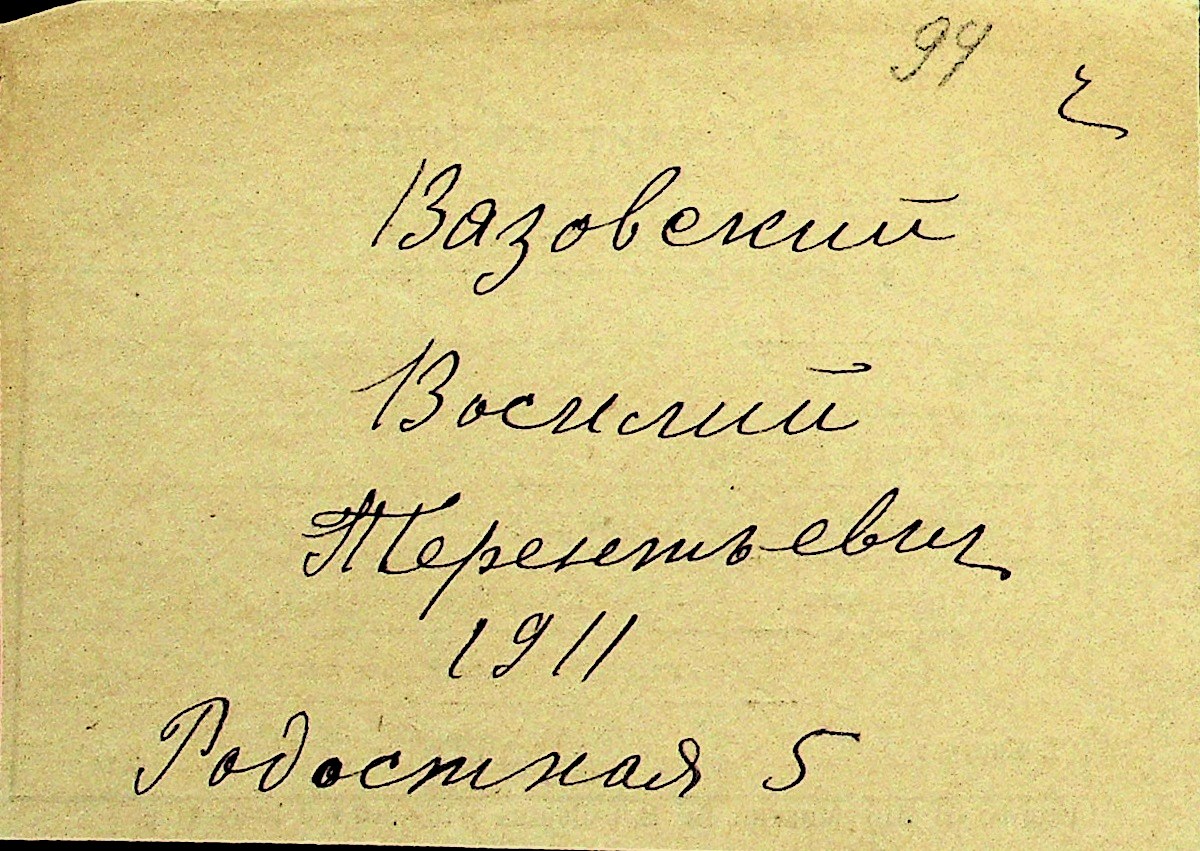 99
ч
Вазовский
Василий
Терентьевич
1911
Радостная 5